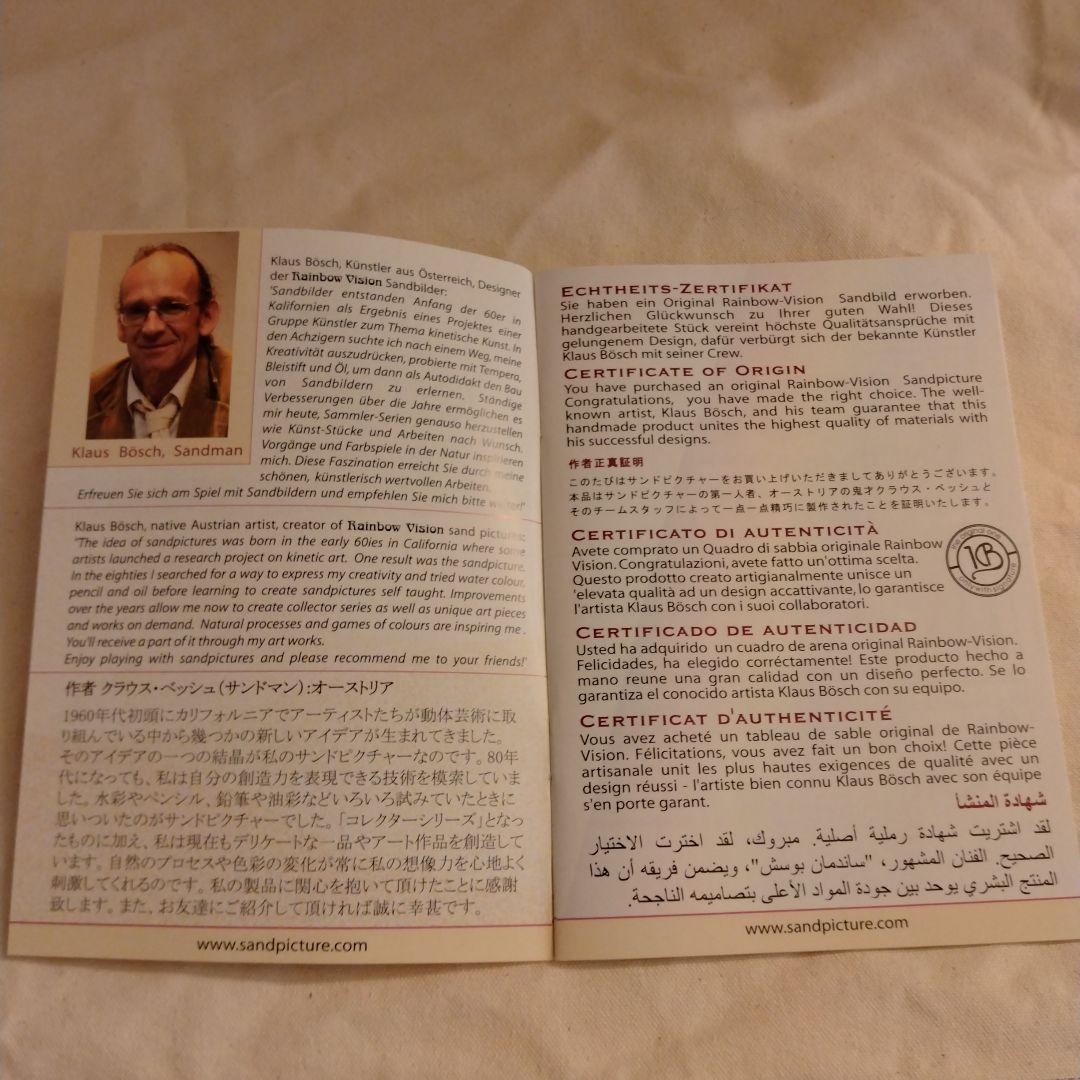 Klaus Bösch, Sandman
Klaus Bösch, Künstler aus Österreich, Designer
der Rainbow Vision Sandbilder:
'Sandbilder entstanden Anfang der 60er in
Kalifornien als Ergebnis eines Projektes einer
Gruppe Künstler zum Thema kinetische Kunst. In
den Achzigern suchte ich nach einem Weg, meine
Kreativität auszudrücken, probierte mit Tempera,
Bleistift und Öl, um dann als Autodidakt den Bau
von Sandbildern zu erlernen. Ständige
Verbesserungen über die Jahre ermöglichen es
mir heute, Sammler-Serien genauso herzustellen
wie Künst-Stücke und Arbeiten nach Wunsch.
Vorgänge und Farbspiele in der Natur inspirieren
mich. Diese Faszination erreicht Sie durch meine
schönen, künstlerisch wertvollen Arbeiten.
Erfreuen Sie sich am Spiel mit Sandbildern und empfehlen Sie mich bitte weiter!'
Klaus Bösch, native Austrian artist, creator of Rainbow Vision sand pictures:
"The idea of sandpictures was born in the early 60ies in California where some
artists launched a research project on kinetic art. One result was the sandpicture.
In the eighties I searched for a way to express my creativity and tried water colour,
pencil and oil before learning to create sandpictures self taught. Improvements
over the years allow me now to create collector series as well as unique art pieces
and works on demand. Natural processes and games of colours are inspiring me.
You'll receive a part of it through my art works.
Enjoy playing with sandpictures and please recommend me to your friends!'
作者 クラウス・ベッシュ(サンドマン):オーストリア
1960年代初頭にカリフォルニアでアーティストたちが動体芸術に取
り組んでいる中から幾つかの新しいアイデアが生まれてきました。
そのアイデアの一つの結晶が私のサンドピクチャーなのです。80年
代になっても、私は自分の創造力を表現できる技術を模索していま
した。水彩やペンシル、鉛筆や油彩などいろいろ試みていたときに
思いついたのがサンドピクチャーでした。「コレクターシリーズ」となっ
たものに加え、私は現在もデリケートな一品やアート作品を創造して
います。自然のプロセスや色彩の変化が常に私の想像力を心地よく
刺激してくれるのです。私の製品に関心を抱いて頂けたことに感謝
致します。また、お友達にご紹介して頂ければ誠に幸甚です。
www.sandpicture.com
Echtheits-Zertifikat
Sie haben ein Original Rainbow-Vision Sandbild erworben.
Herzlichen Glückwunsch zu Ihrer guten Wahl! Dieses
handgearbeitete Stück vereint höchste Qualitätsansprüche mit
gelungenem Design, dafür verbürgt sich der bekannte Künstler
Klaus Bösch mit seiner Crew.
Certificate of Origin
You have purchased an original Rainbow-Vision Sandpicture
Congratulations, you have made the right choice. The well-
known artist, Klaus Bösch, and his team guarantee that this
handmade product unites the highest quality of materials with
his successful designs.
作者正真証明
このたびはサンドピクチャーをお買い上げいただきましてありがとうございます。
本品はサンドピクチャーの第一人者、オーストリアの鬼才クラウス・ベッシュと
そのチームスタッフによって一点一点精巧に製作されたことを証明いたします。
Certificato di autenticità
Avete comprato un Quadro di sabbia originale Rainbow
Vision. Congratulazioni, avete fatto un'ottima scelta.
Questo prodotto creato artigianalmente unisce un
'elevata qualità ad un design accattivante, lo garantisce
l'artista Klaus Bösch con i suoi collaboratori.
the original one
KB
only with signature
Certificado de autenticidad
Usted ha adquirido un cuadro de arena original Rainbow-Vision.
Felicidades, ha elegido corréctamente! Este producto hecho a
mano reune una gran calidad con un diseño perfecto. Se lo
garantiza el conocido artista Klaus Bösch con su equipo.
Certificat d'authenticité
Vous avez acheté un tableau de sable original de Rainbow-
Vision. Félicitations, vous avez fait un bon choix! Cette pièce
artisanale unit les plus hautes exigences de qualité avec un
design réussi - l'artiste bien connu Klaus Bösch avec son équipe
s'en porte garant.
شهادة المنشأ
لقد اشتريت شهادة رملية أصلية. مبروك، لقد اخترت الاختيار
الصحيح. الفنان المشهور، "ساندمان بوسش"، ويضمن فريقه أن هذا
المنتج البشري يوحد بين جودة المواد الأعلى بتصاميمه الناجحة.
www.sandpicture.com